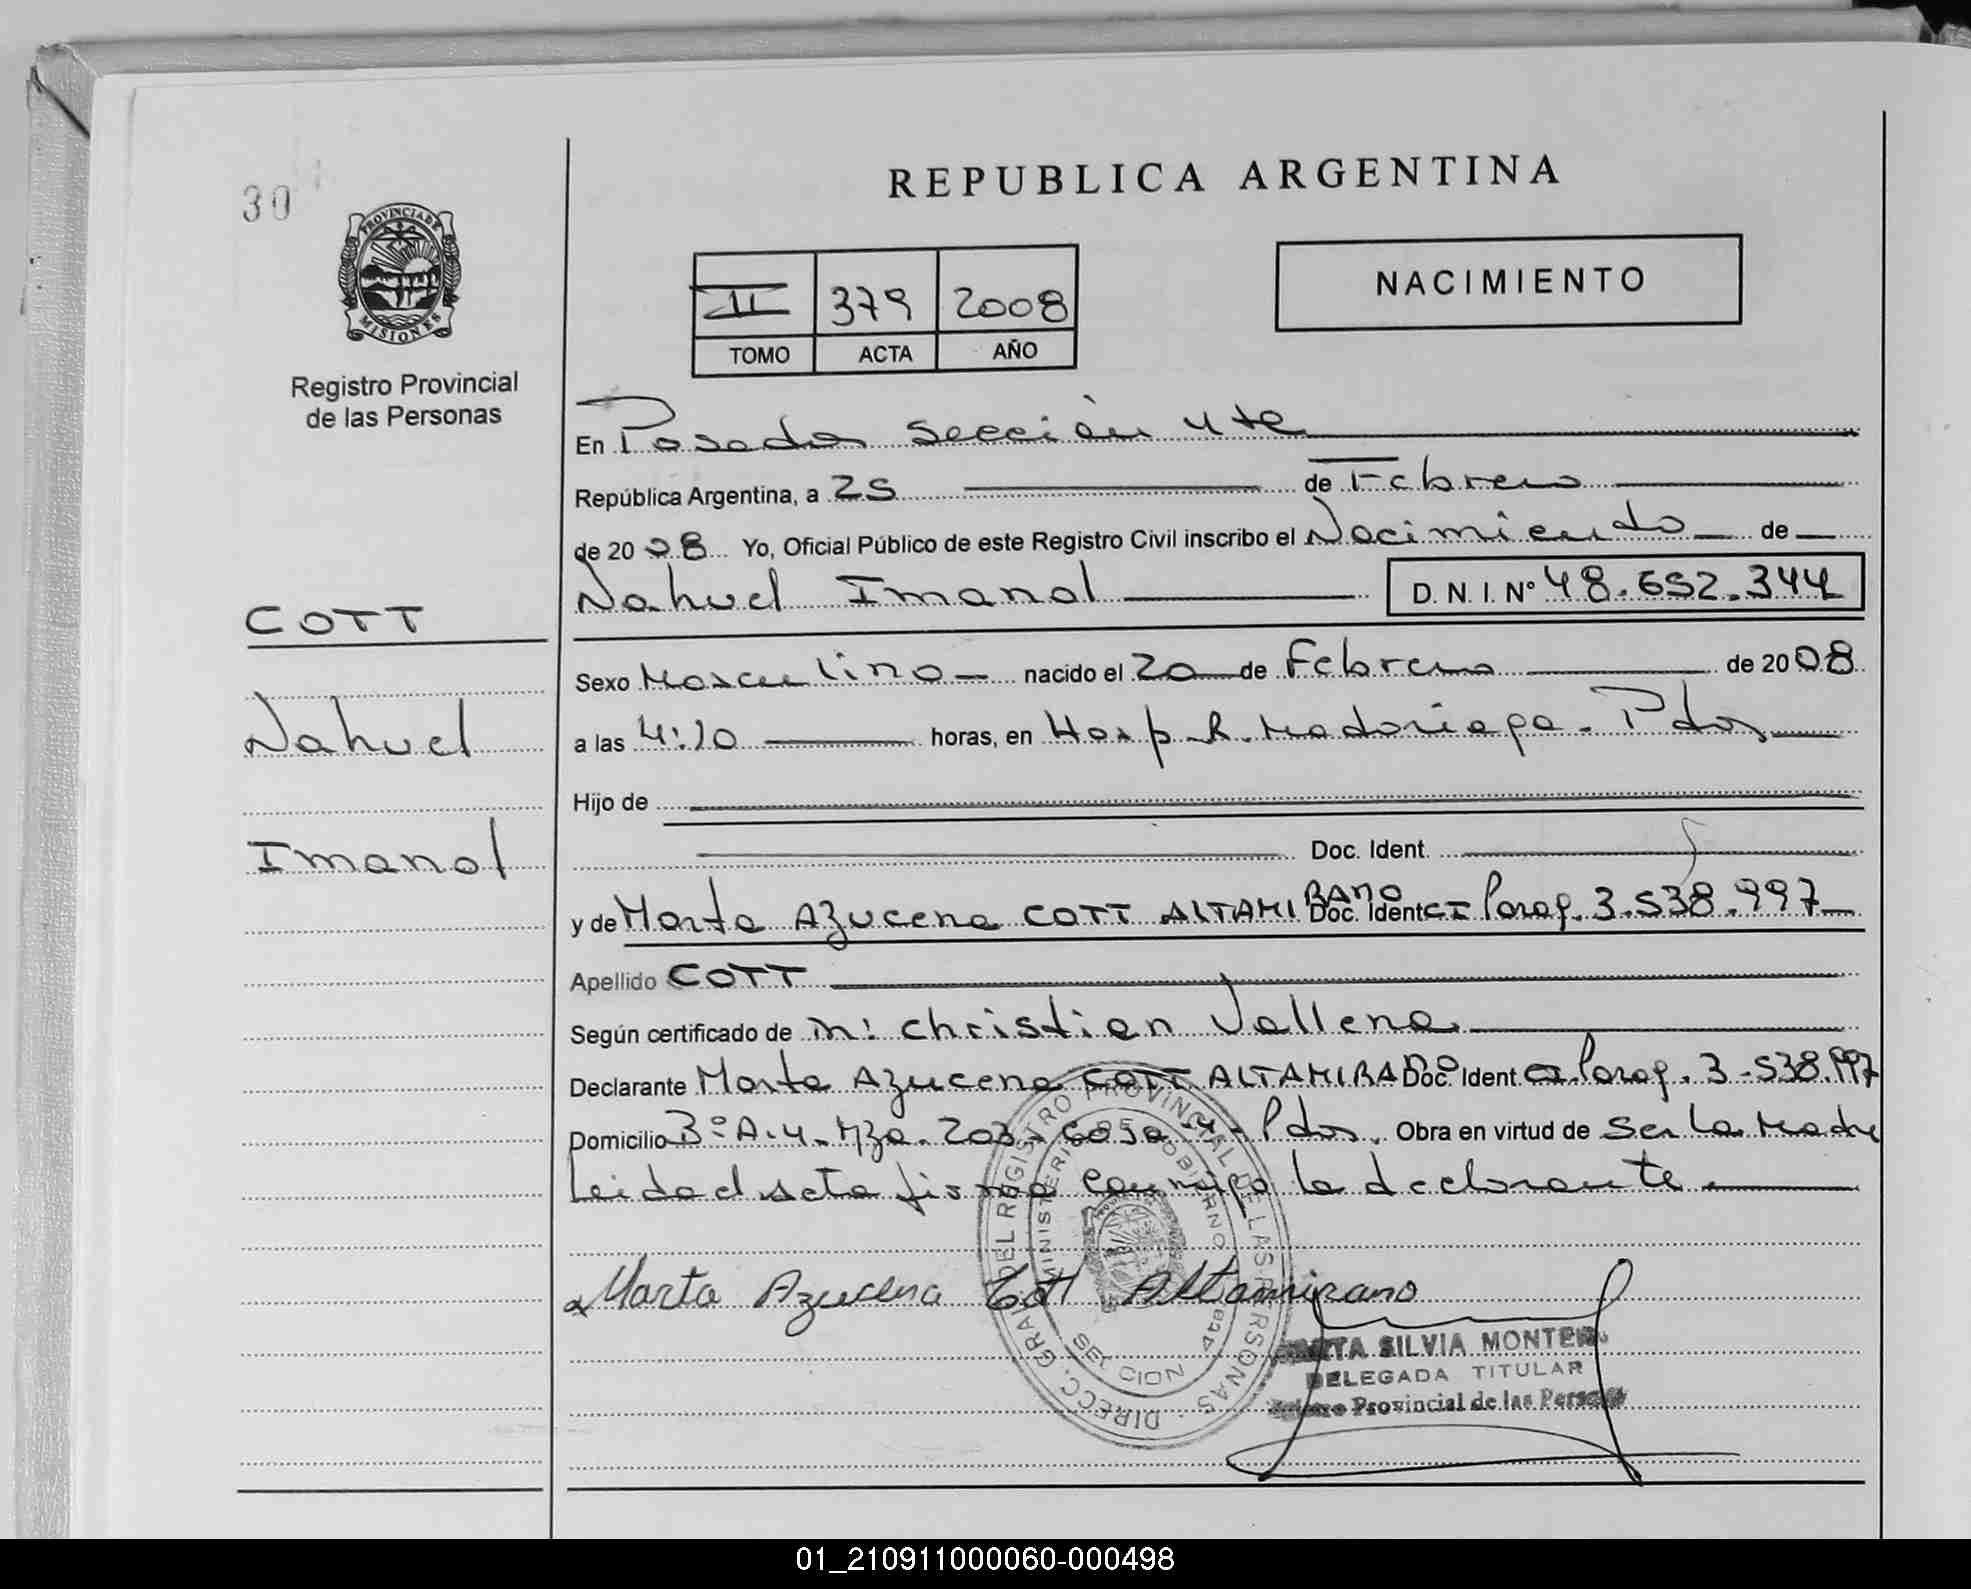 30
REPUBLICA ARGENTINA
PROVINCIA DE MISIONES
Registro Provincial
de las Personas
II 379 2008
TOMO ACTA AÑO
NACIMIENTO
En Posadas Sección 4ta
República Argentina, a 25 de Febrero
de 2008 Yo, Oficial Público de este Registro Civil inscribo el Nacimiento de
Nahuel Imanol D. N. I. Nº 48.652.344
COTT
Nahuel
Imanol
Sexo Masculino nacido el 20 de Febrero de 2008
a las 4:10 horas, en Hosp. R. Madariaga. Pdas
Hijo de
Doc. Ident.
y de Marta Azucena COTT ALTAMIRANO Doc. Ident CI Parag. 3.538.997
Apellido COTT
Según certificado de m: Christian Vallena
Declarante Marta Azucena COTT ALTAMIRANO Doc. Ident CI. Parag. 3.538.997
Domicilio 3º A.4. Mza. 203. Casa 4 - Pdas. Obra en virtud de Ser La Madre
Leida el acta firma conmigo la declarante
Marta Azucena Cott Altamirano
DIRECC. GRAL DEL REGISTRO PROVINCIAL DE LAS PERSONAS
MINISTERIO GOBIERNO
SECCION 4ta
SILVIA MONTER
DELEGADA TITULAR
Provincial de las Personas
01_210911000060-000498